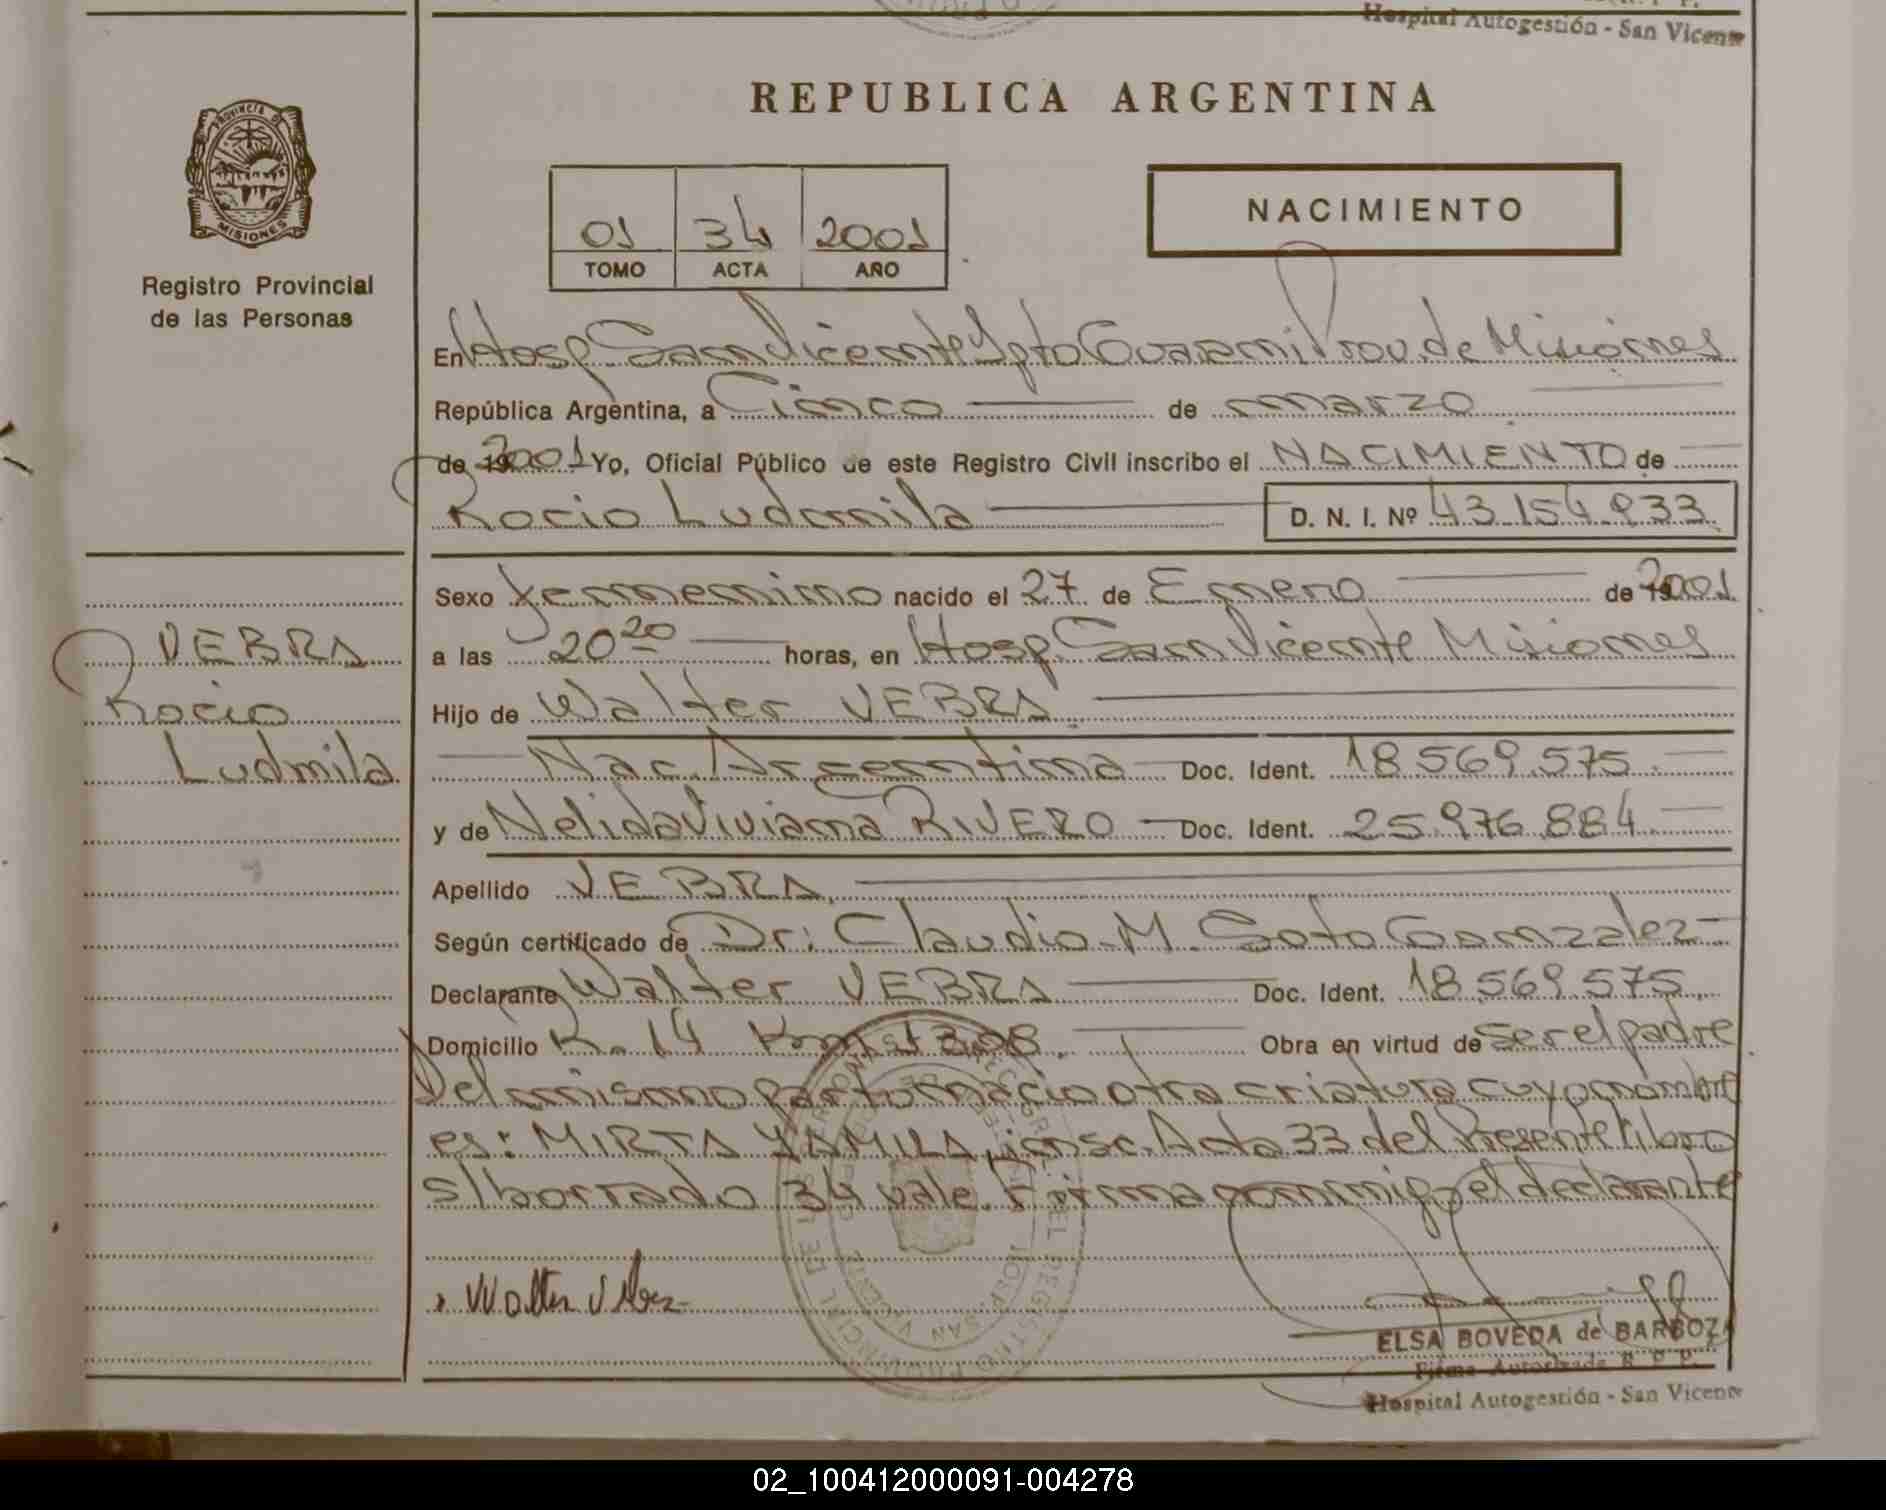 Hospital Autogestión - San Vicente
REPUBLICA ARGENTINA
PROVINCIA DE
MISIONES
Registro Provincial
de las Personas
01 34 2001
TOMO ACTA AÑO
NACIMIENTO
En Hosp San Vicente Dpto Guarani Prov. de Misiones
República Argentina, a Cinco de marzo
de 19 2001 Yo, Oficial Público de este Registro Civil inscribo el NACIMIENTO de
Rocio Ludmila D. N. I. Nº 43.154.933
Sexo femenino nacido el 27 de Enero de 19 2001
a las 20 20 horas, en Hosp. San Vicente Misiones
Hijo de Walter VEBRA
Nac. Argentina Doc. Ident. 18.569.575
y de Nelida Viviana RIVERO Doc. Ident. 25.976.884
Apellido VEBRA
Según certificado de Dr: Claudio M. Soto Gonzalez
Declarante Walter VEBRA Doc. Ident. 18.569.575
Domicilio R. 14 Obra en virtud de ser el padre
Del mismo parto nacio otra criatura cuyo nombre
es: MIRTA YAMILA, insc. Acta 33 del Presente Libro
s/borrado 34 vale. Firma conmigo el declarante
VEBRA
Rocio
Ludmila
Walter
ELSA BOVEDA de BARBOZA
Firma Autorizada R. P. P.
Hospital Autogestión - San Vicente
02_100412000091-004278